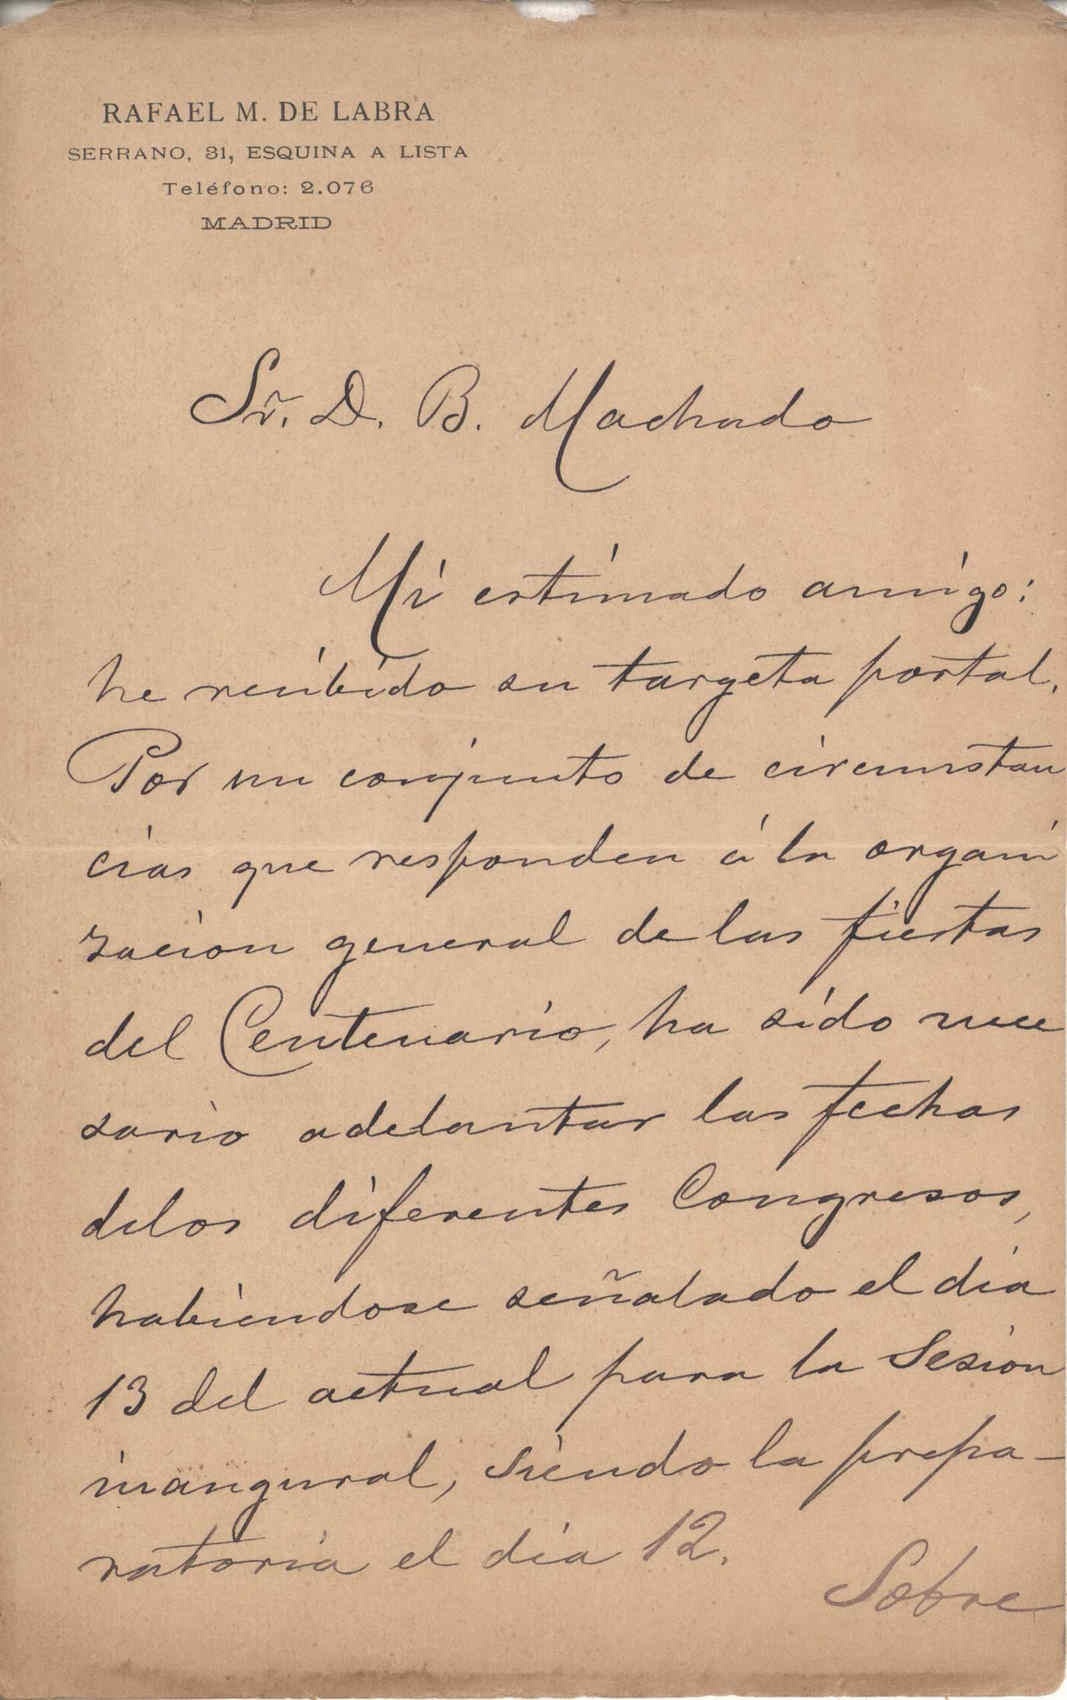 RAFAEL M. DE LABRA
SERRANO, 31, ESQUINA A LISTA
Teléfono: 2.076
MADRID
Sr̃. D. B. Machado
Mi estimado amigo:
he recibido su targeta postal.
Por un conjunto de circunstan
cias que responden á la organi
zacion general de las fiestas
del Centenario, ha sido nece
sario adelantar las fechas
delos diferentes Congresos,
habiendose señalado el dia
13 del actual para la Sesion
inaugural, siendo la prepa-
ratoria el dia 12.
Sobre